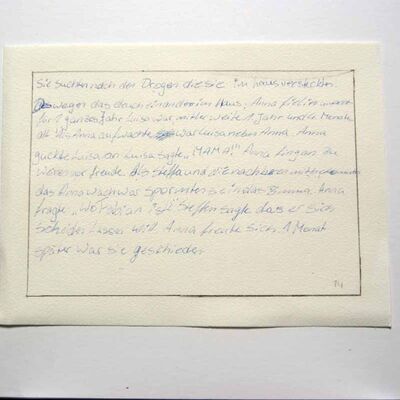 Sie suchten nach den Drogen die sie im haus versteckten.
wegen das durch einander im Haus. Anna fiel in
für 1 ganzes Jahr Luisa war mitler weite 1 Jahr und 6 Monate
alt. Als Anna aufwachte war Luisa neben Anna. Anna
guckte Luisa an Luisa sagte „MAMA!" Anna fing an zu
weinen vor freude. Als Steffen und die nachbaren
das Anna wach war sporinten sie in das Zimmer. Anna
fragte „wo Fabian ist" Steffen sagte das er sich
scheiden lassen will. Anna freute sich. 1 Monat
später war sie geschieden
14